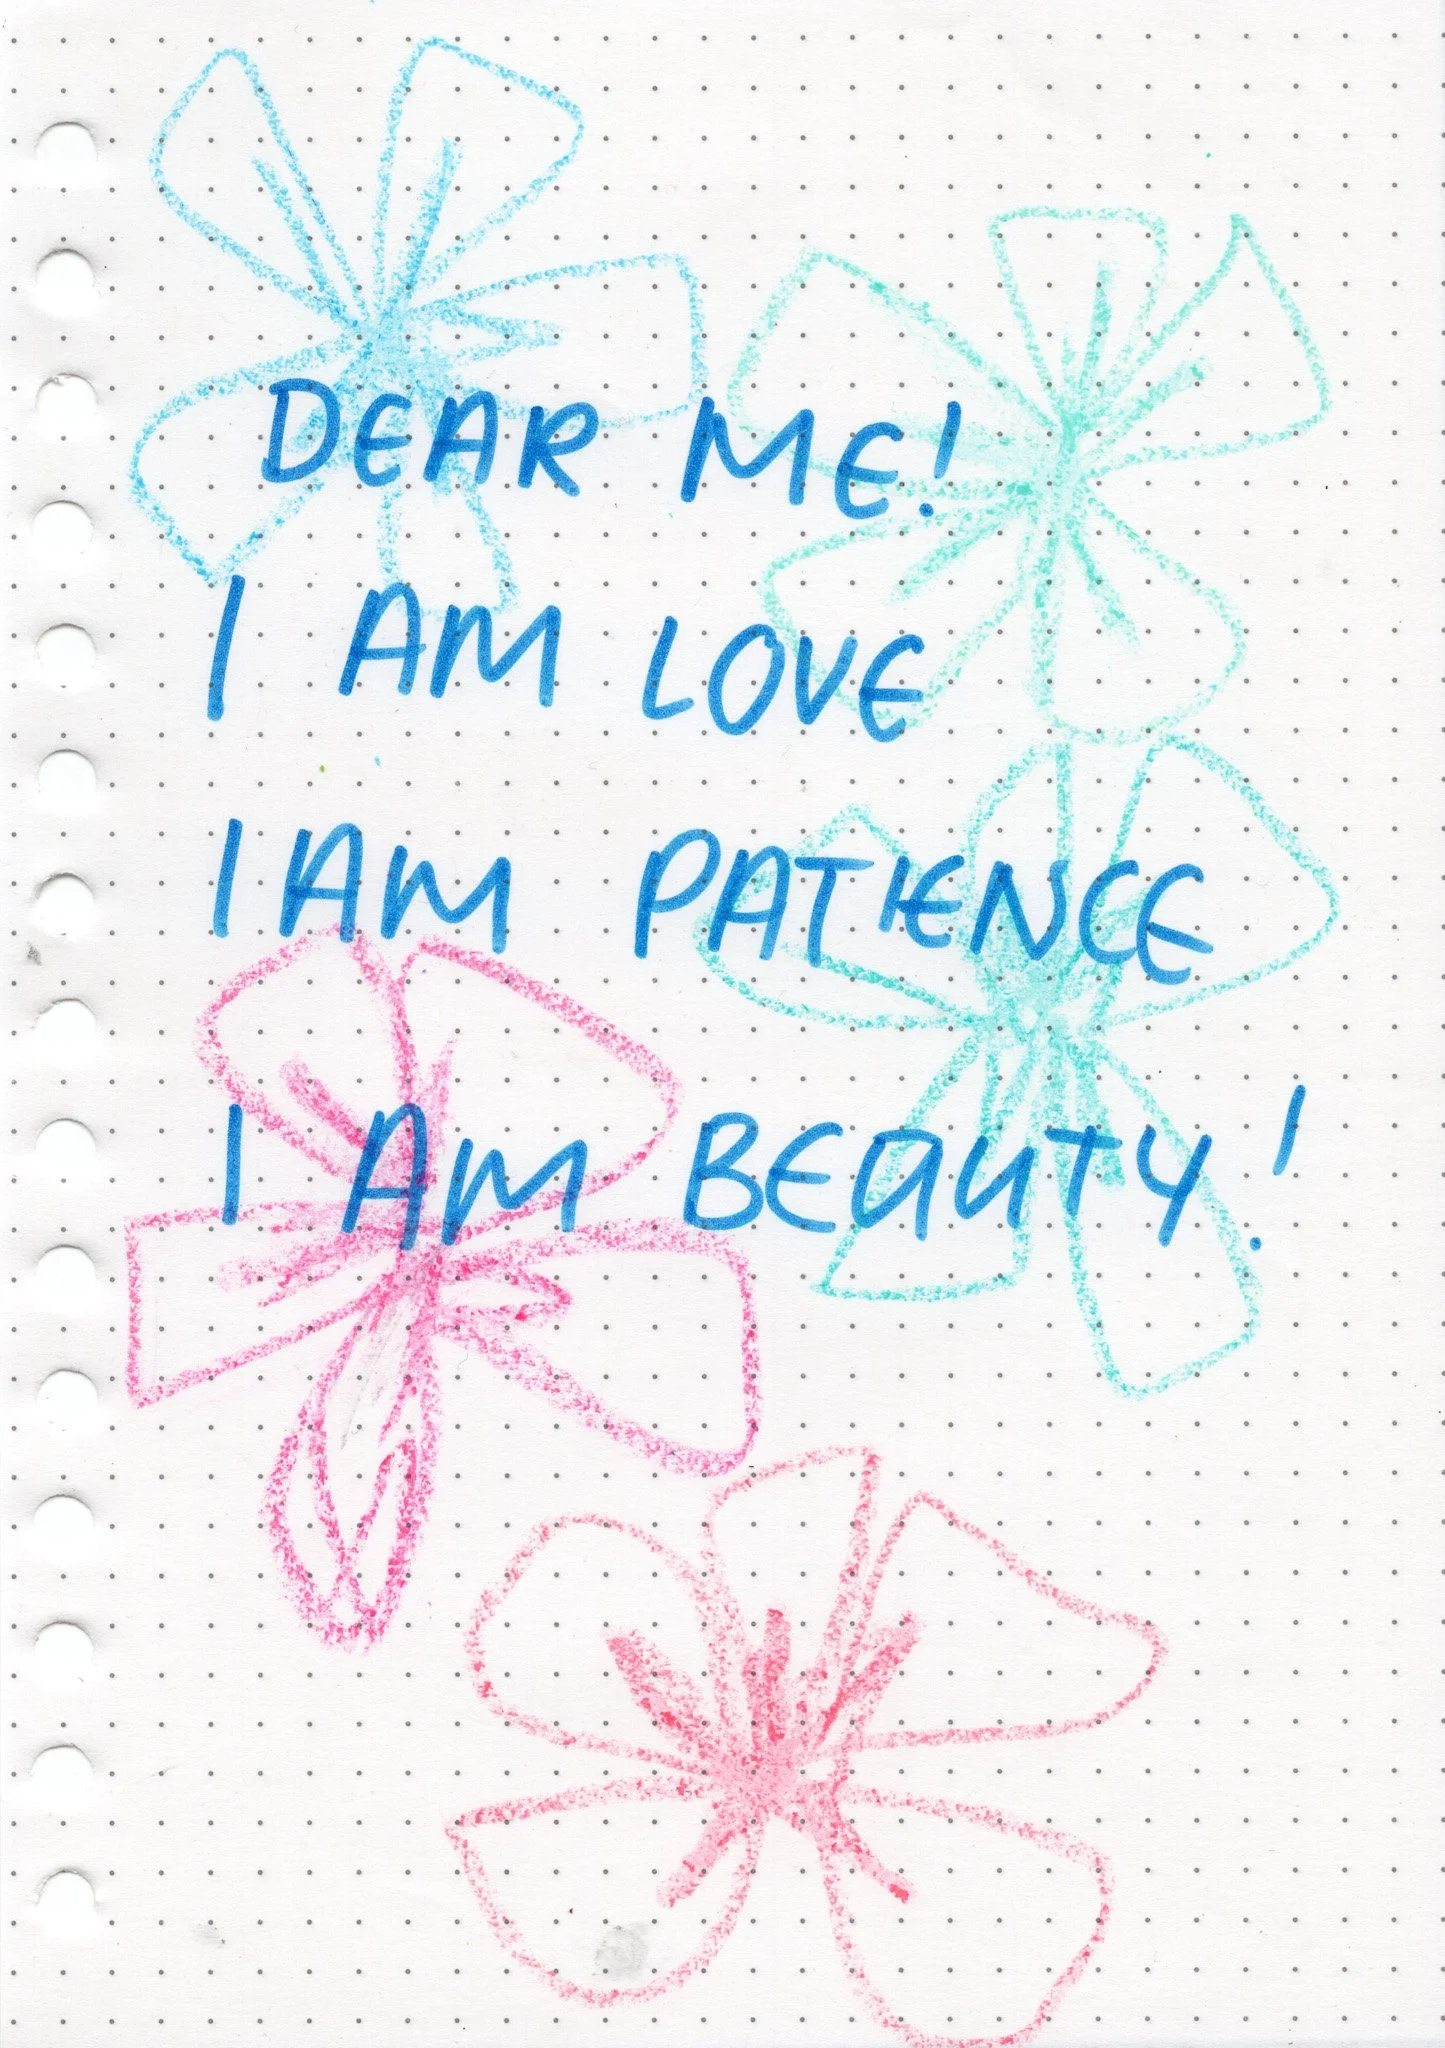 DEAR ME!
I AM LOVE
I AM PATIENCE
I AM BEAUTY!